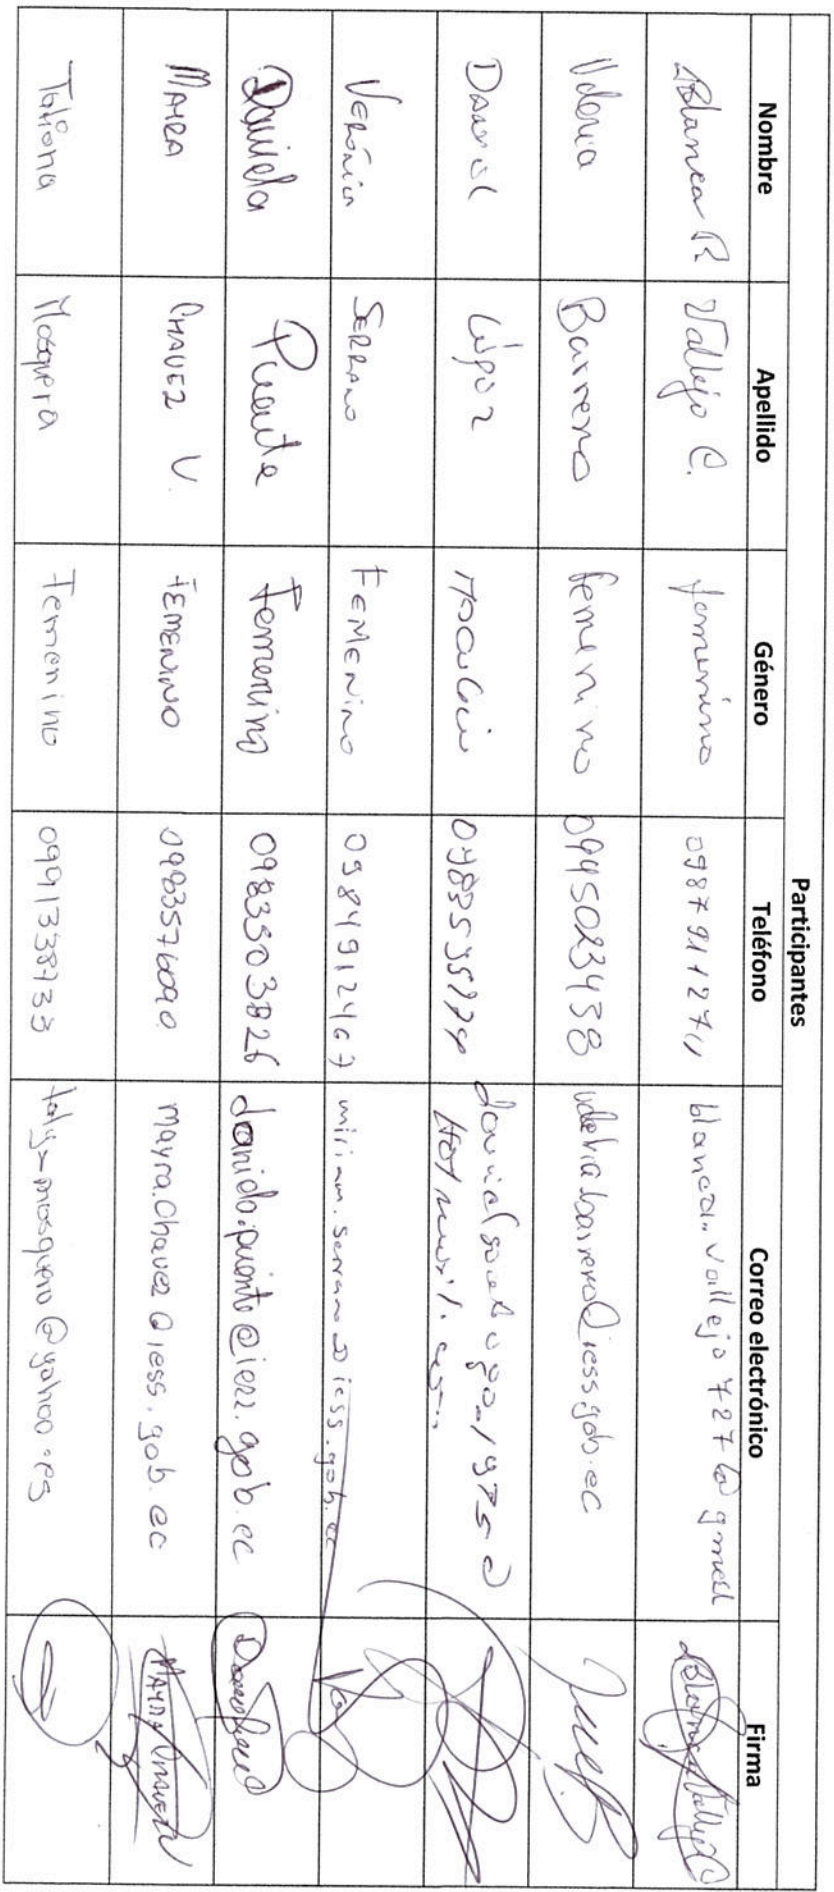 Participantes
Nombre Apellido Género Teléfono Correo electrónico Firma
Blanca R Vallejo C. femenino blanca..vallejo727@gmail
Valeria Barreno femenino 0995023438 valeria.barreno@iess.gob.ec
López
Verónica SERRANO FEMENINO 0984912467 miriam.serrano@iess.gob.ec
Daniela Puente Femenino 0983303826 daniela.puente@iess.gob.ec
MAYRA CHAVEZ V. FEMENINO 0983576090 mayra.chavez@iess.gob.ec
Tatiana Mosquera Femenino 0991338733 taty_mosquera@yahoo.es